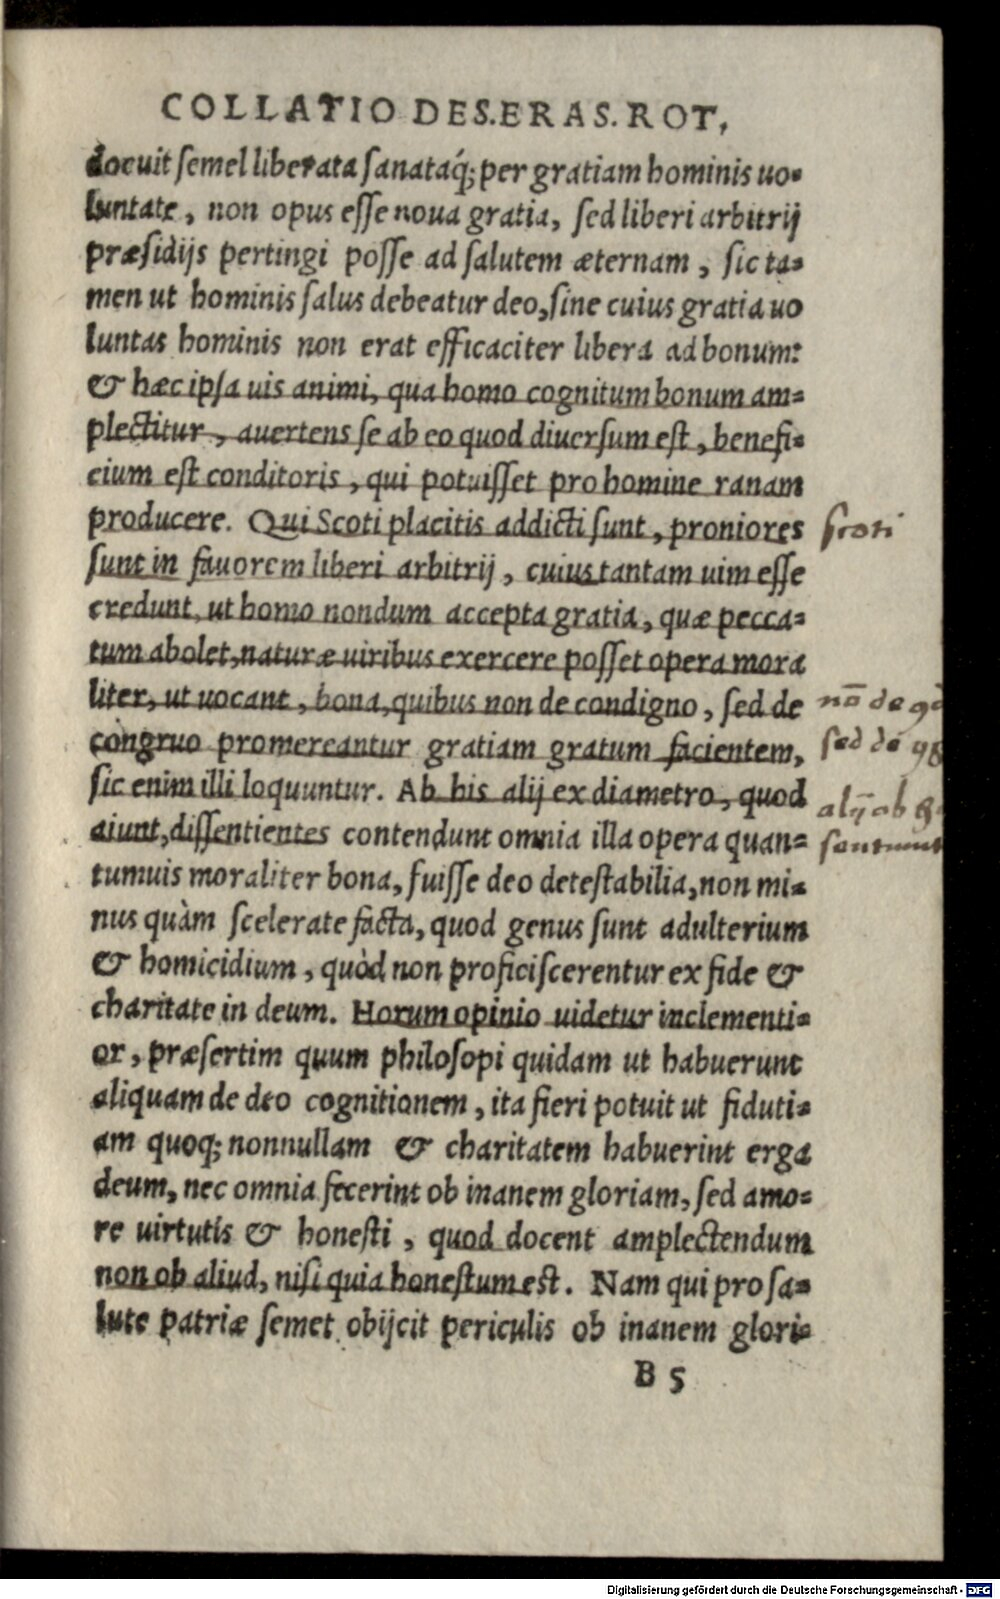 COLLATIO DES.ERAS.ROT,
docuit semel liberata sanataq́; per gratiam hominis uo-
luntate, non opus esse noua gratia, sed liberi arbitrij
præsidijs pertingi posse ad salutem æternam, sic ta-
men ut hominis salus debeatur deo, sine cuius gratia uo
luntas hominis non erat efficaciter libera ad bonum:
& hæc ipsa uis animi, qua homo cognitum bonum am-
plectitur, auertens se ab eo quod diuersum est, benefi-
cium est conditoris, qui potuisset pro homine ranam
producere. Qui Scoti placitis addicti sunt, proniores
scoti
sunt in fauorem liberi arbitrij, cuius tantam uim esse
credunt, ut homo nondum accepta gratia, quæ pecca-
tum abolet, naturæ uiribus exercere posset opera mora
liter, ut uocant, bona, quibus non de condigno, sed de
nō de
congruo promereantur gratiam gratum facientem,
sed de
sic enim illi loquuntur. Ab his alij ex diametro, quod
alij ab
aiunt, dissentientes contendunt omnia illa opera quan-
tumuis moraliter bona, fuisse deo detestabilia, non mi-
nus quàm scelerate facta, quod genus sunt adulterium
& homicidium, quòd non proficiscerentur ex fide &
charitate in deum. Horum opinio uidetur inclementi-
or, præsertim quum philosopi quidam ut habuerunt
aliquam de deo cognitionem, ita fieri potuit ut fiduti-
am quoq; nonnullam & charitatem habuerint erga
deum, nec omnia fecerint ob inanem gloriam, sed amo-
re uirtutis & honesti, quod docent amplectendum
non ob aliud, nisi quia honestum est. Nam qui pro sa-
lute patriæ semet obijcit periculis ob inanem glori-
B 5
Digitalisierung gefördert durch die Deutsche Forschungsgemeinschaft - DFG